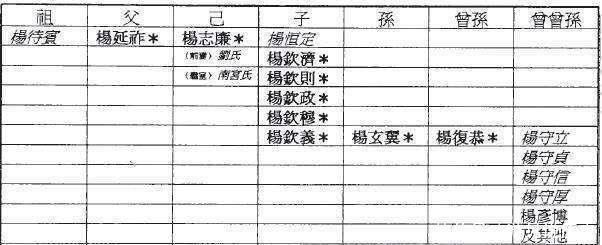 祖 父 己 子 孫 曾孫 曾曾孫
楊待賓 楊延祚* 楊志廉* 楊恒定
(前妻) 劉氏 楊欽濟*
(繼室) 南宮氏 楊欽則*
楊欽政*
楊欽穆*
楊欽義* 楊玄冀* 楊復恭* 楊守立
楊守貞
楊守信
楊守厚
楊彥博
及其他